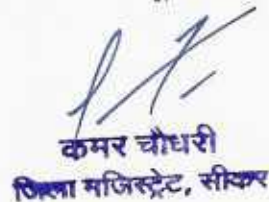 कमर चौधरी
जिला मजिस्ट्रेट, सीकर